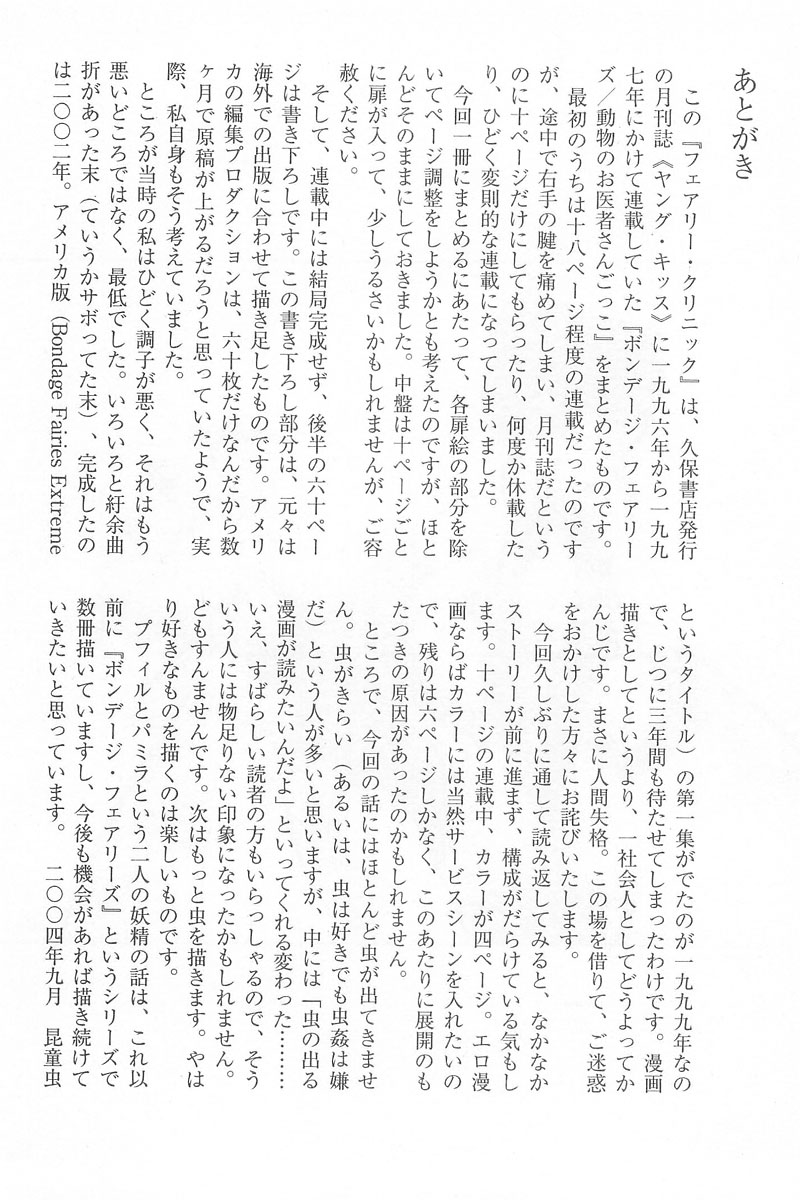 あとがき
　この『フェアリー・クリニック』は、久保書店発行
の月刊誌《ヤング・キッス》に一九九六年から一九九
七年にかけて連載していた『ボンデージ・フェアリー
ズ／動物のお医者さんごっこ』をまとめたものです。
　最初のうちは十八ページ程度の連載だったのです
が、途中で右手の腱を痛めてしまい、月刊誌だという
のに十ページだけにしてもらったり、何度か休載した
り、ひどく変則的な連載になってしまいました。
　今回一冊にまとめるにあたって、各扉絵の部分を除
いてページ調整をしようかとも考えたのですが、ほと
んどそのままにしておきました。中盤は十ページごと
に扉が入って、少しうるさいかもしれませんが、ご容
赦ください。
　そして、連載中には結局完成せず、後半の六十ペー
ジは書き下ろしです。この書き下ろし部分は、元々は
海外での出版に合わせて描き足したものです。アメリ
カの編集プロダクションは、六十枚だけなんだから数
ヶ月で原稿が上がるだろうと思っていたようで、実
際、私自身もそう考えていました。
　ところが当時の私はひどく調子が悪く、それはもう
悪いどころではなく、最低でした。いろいろと紆余曲
折があった末（ていうかサボってた末）、完成したの
は二〇〇二年。アメリカ版（Bondage Fairies Extreme
というタイトル）の第一集がでたのが一九九九年なの
で、じつに三年間も待たせてしまったわけです。漫画
描きとしてというより、一社会人としてどうよってか
んじです。まさに人間失格。この場を借りて、ご迷惑
をおかけした方々にお詫びいたします。
　今回久しぶりに通して読み返してみると、なかなか
ストーリーが前に進まず、構成がだらけている気もし
ます。十ページの連載中、カラーが四ページ。エロ漫
画ならばカラーには当然サービスシーンを入れたいの
で、残りは六ページしかなく、このあたりに展開のも
たつきの原因があったのかもしれません。
　ところで、今回の話にはほとんど虫が出てきませ
ん。虫がきらい（あるいは、虫は好きでも虫姦は嫌
だ）という人が多いと思いますが、中には「虫の出る
漫画が読みたいんだよ」といってくれる変わった………
いえ、すばらしい読者の方もいらっしゃるので、そう
いう人には物足りない印象になったかもしれません。
どもすんませんです。次はもっと虫を描きます。やは
り好きなものを描くのは楽しいものです。
　プフィルとパミラという二人の妖精の話は、これ以
前に『ボンデージ・フェアリーズ』というシリーズで
数冊描いていますし、今後も機会があれば描き続けて
いきたいと思っています。　二〇〇四年九月　昆童虫